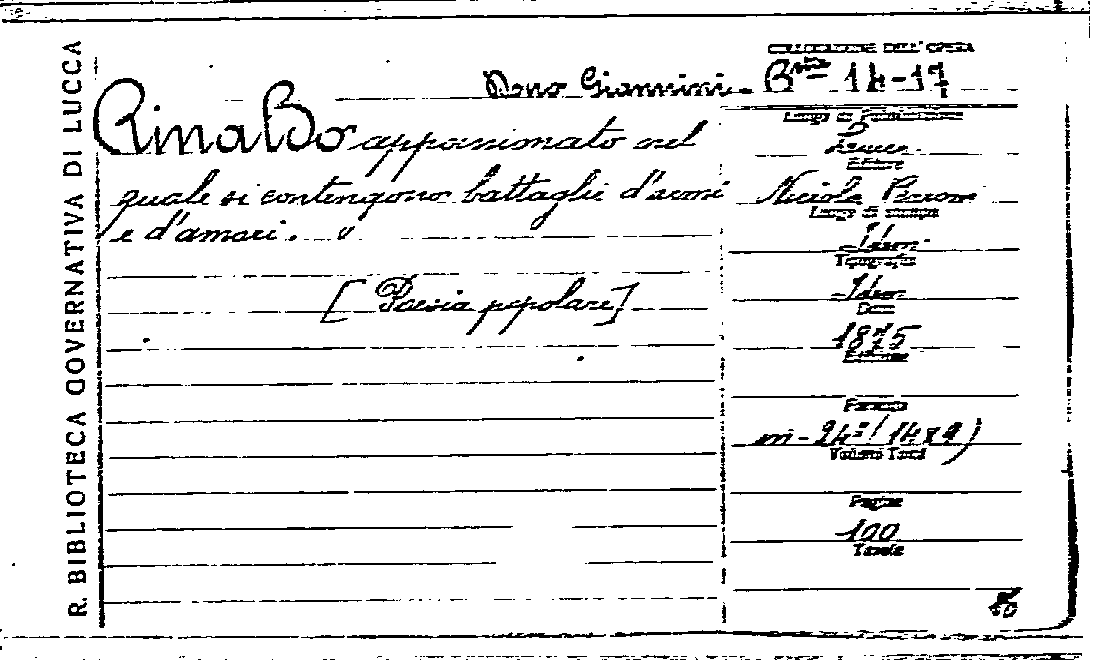 R. BIBLIOTECA GOVERNATIVA DI LUCCA
COLLOCAZIONE DELL'OPERA
Dono Giannini - B^ne 14-17
Rinaldo appassionato nel
quale si contengono battaglie d'armi
e d'amori.
[Poesia popolare]
Luogo di Pubblicazione
Lucca
Editore
Nicola Baroni
Luogo di stampa
Idem.
Tipografia
Idem.
Data
1875
Edizione
Formato
in-24º (14x9)
Volumi Tomi
Pagine
100
Tavole